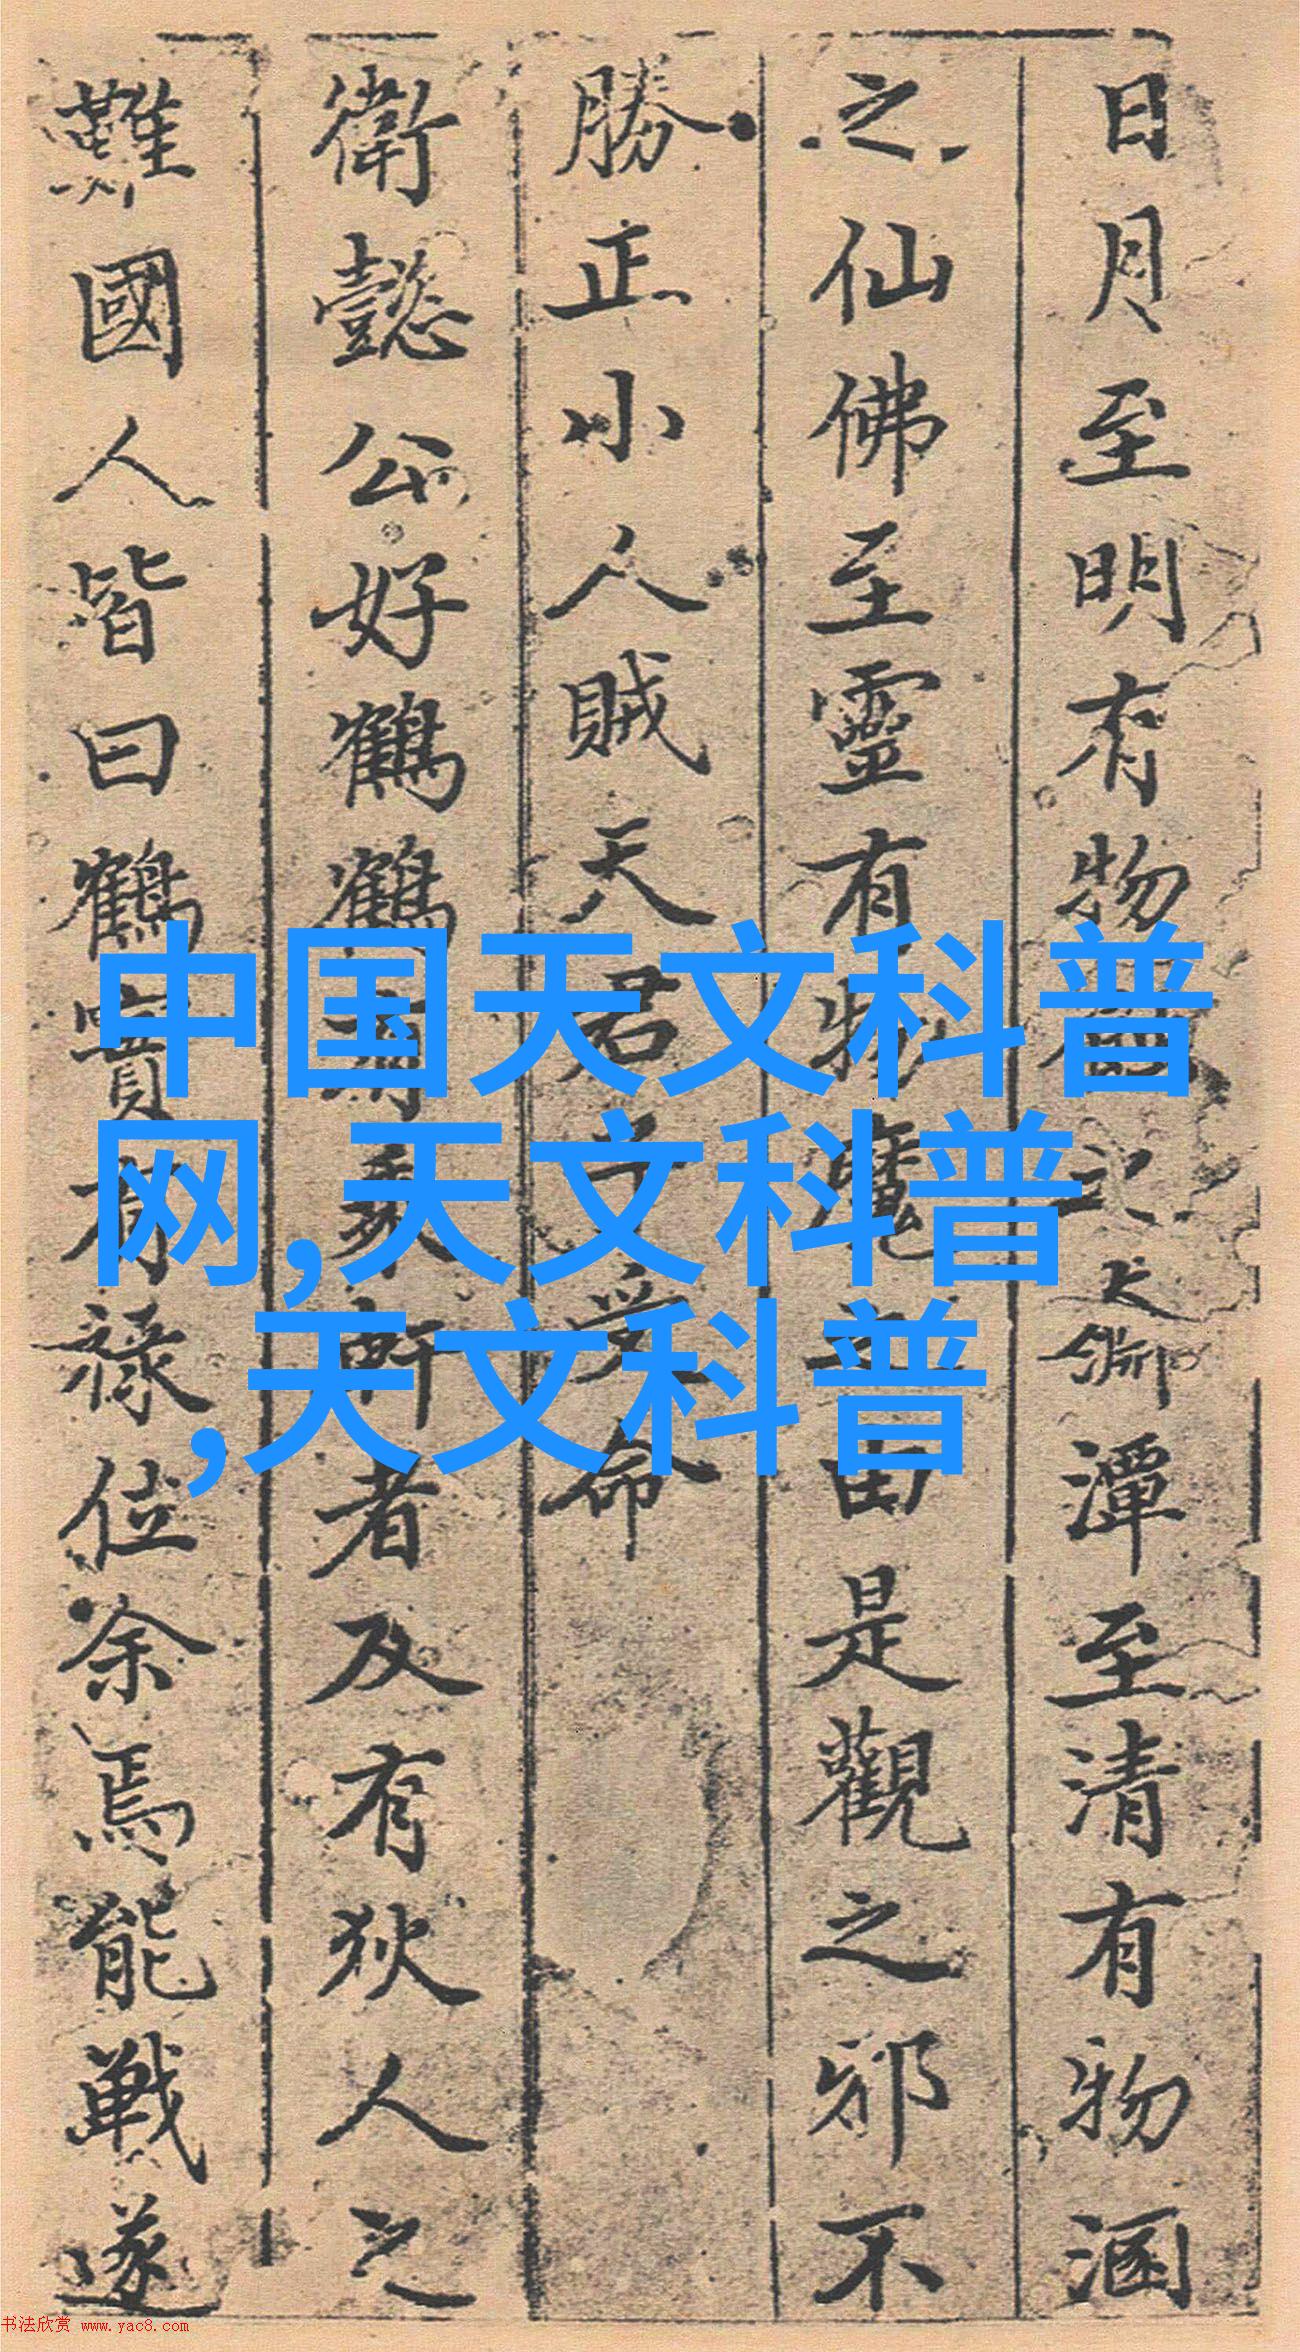 日月至明有物之大渊潭至清有物涵
之仙佛至靈有物魔是由是觀之邪不
勝正小人賊天君子受命
衛懿公好鶴鶴有乘軒者及有狄人之
難國人皆曰鶴實有祿位余焉能戰遂
中国天文科普
网,天文科普
,天文科普
书法欣赏 www.yac8.com